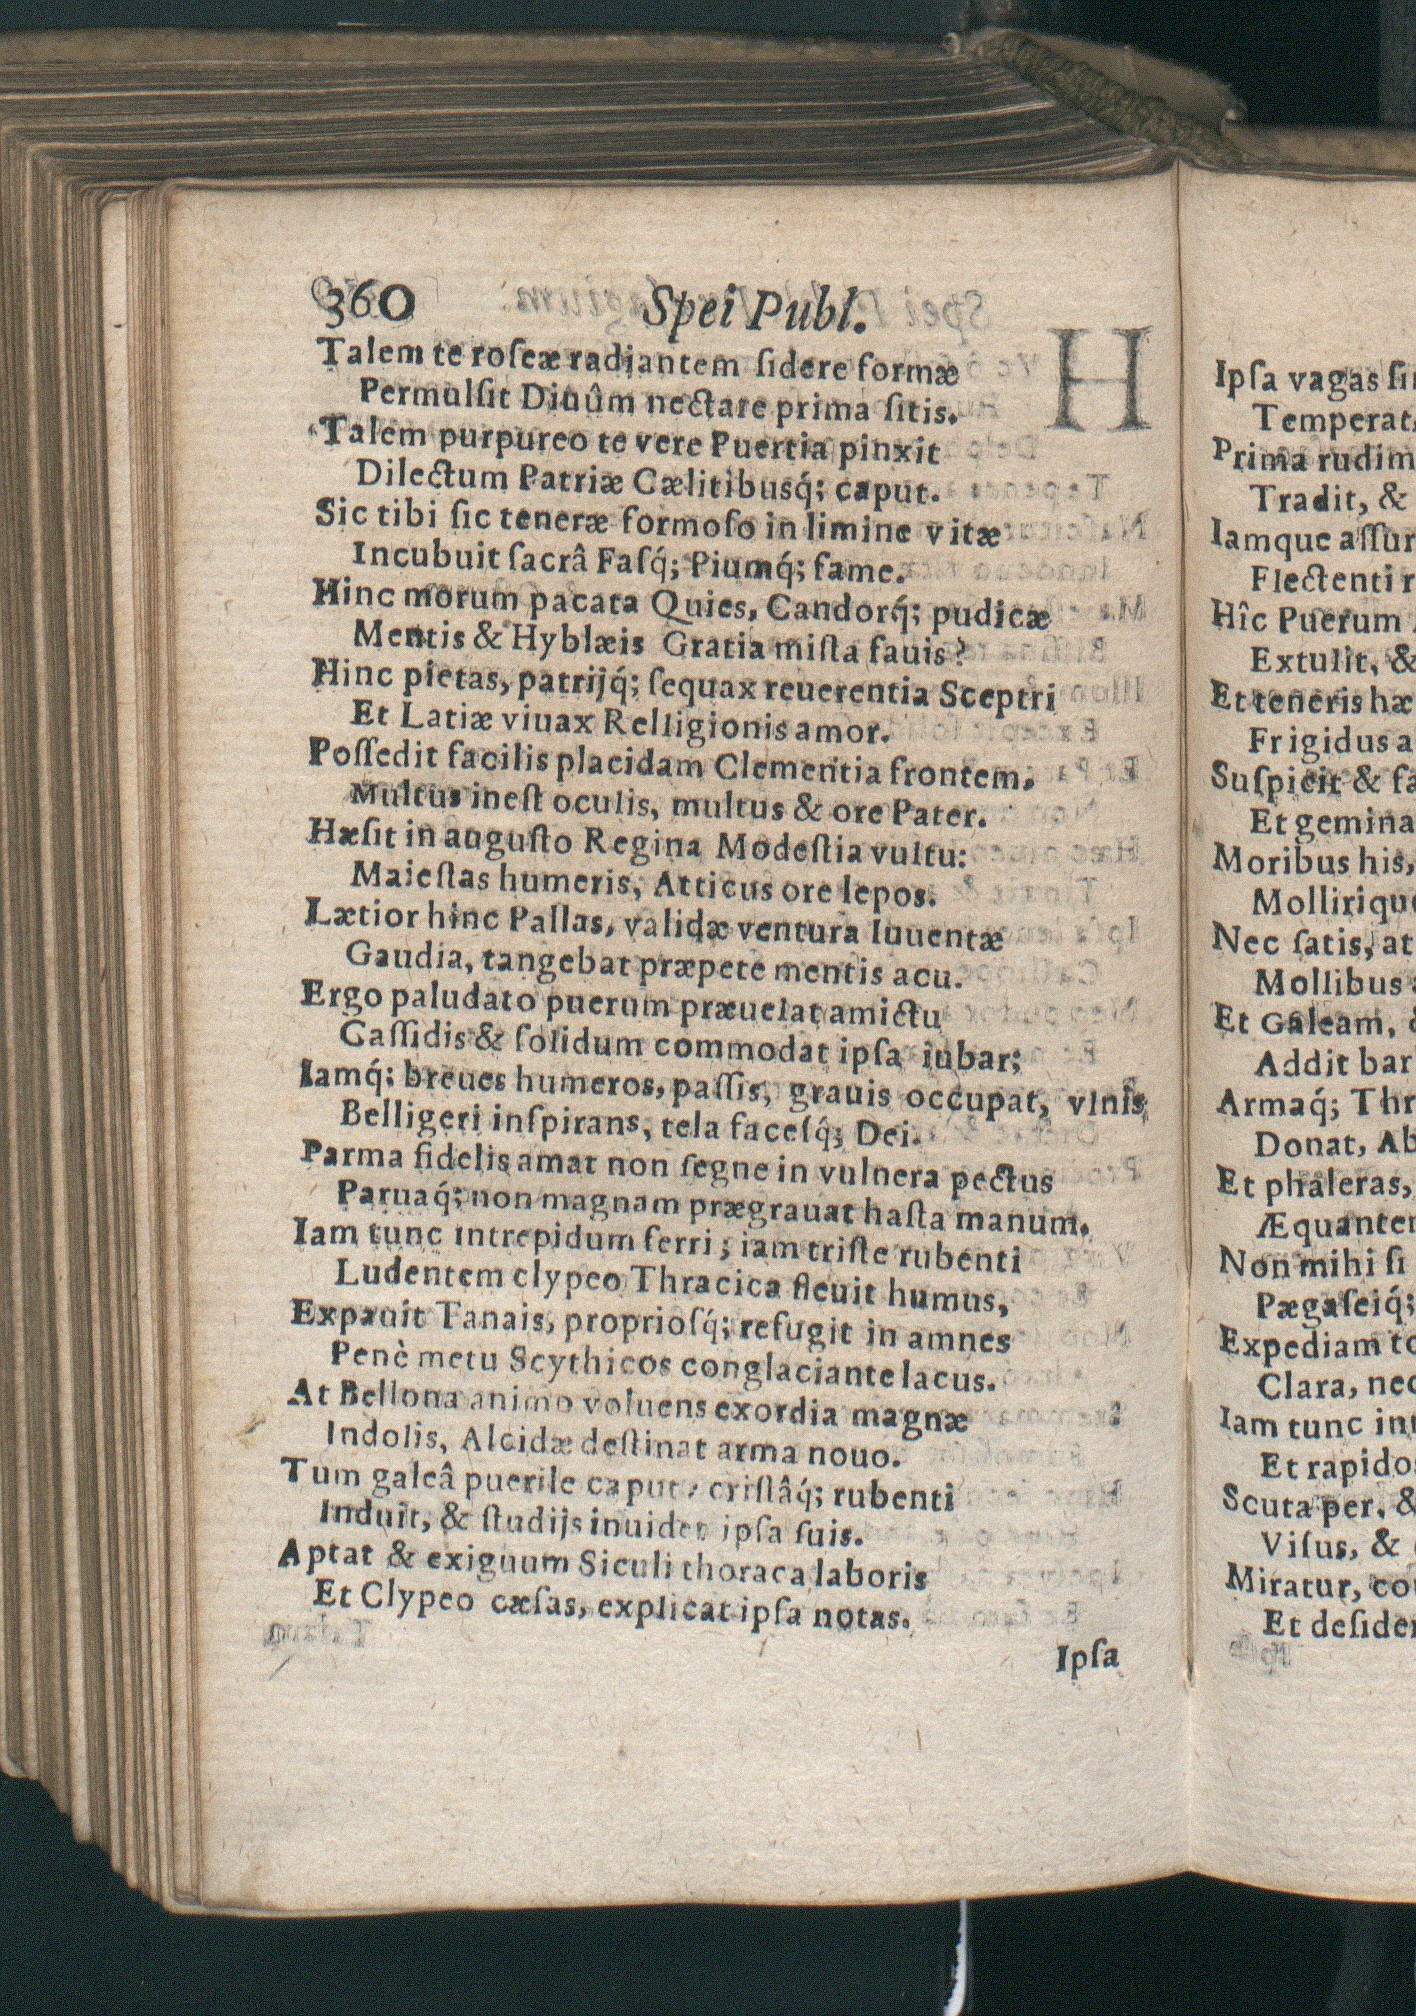 360 Spei Publ.
Talem te roſeæ radiantem ſidere formæ
Permulſit Diuûm nectare prima ſitis.
Talem purpureo te vere Puertia pinxit
Dilectum Patriæ Cælitibusq́; caput.
Sic tibi ſic teneræ formoſo in limine vitæ
Incubuit ſacrâ Faſq́; Piumq́; fame.
Hinc morum pacata Quies, Candorq́; pudicæ
Mentis & Hyblæis Gratia miſta fauis?
Hinc pietas, patrijq́; ſequax reuerentia Sceptri
Et Latiæ viuax Relligionis amor.
Poſſedit facilis placidam Clementia frontem,
Multus ineſt oculis, multus & ore Pater.
Hæſit in auguſto Regina Modeſtia vultu:
Maieſtas humeris, Atticus ore lepos.
Lætior hinc Pallas, validæ ventura Iuuentæ
Gaudia, tangebat præpete mentis acu.
Ergo paludato puerum præuelat amictu
Gaſſidis & ſolidum commodat ipſa iubar;
Iamq́; breues humeros, paſſis, grauis occupat, vlnis
Belligeri inſpirans, tela faceſq́; Dei.
Parma fidelis amat non ſegne in vulnera pectus
Paruaq́; non magnam prægrauat haſta manum.
Iam tunc intrepidum ferri; iam triſte rubenti
Ludentem clypeo Thracica fleuit humus,
Expauit Tanais, proprioſq́; refugit in amnes
Penè metu Scythicos conglaciante lacus.
At Bellona animo voluens exordia magnæ
Indolis, Alcidæ deſtinat arma nouo.
Tum galeâ puerile caput, criſtâq́; rubenti
Induit, & ſtudijs inuidet ipſa ſuis.
Aptat & exiguum Siculi thoraca laboris
Et Clypeo cæſas, explicat ipſa notas.
Ipſa
Ipſa vagas
Temperat,
Prima
Tradit, &
Iamque
Flectenti
Hîc Puerum
Extulit, &
Et teneris
Frigidus
Suſpicit &
Et gemina
Moribus his,
Mollirique
Nec ſatis, at
Mollibus
Et Galeam,
Addit
Armaq́;
Donat,
Et phaleras,
Non mihi ſi
Pægaſeiq́;
Expediam
Clara, nec
Iam tunc
Et
Scuta per, &
Viſus, &
Miratur,
Et